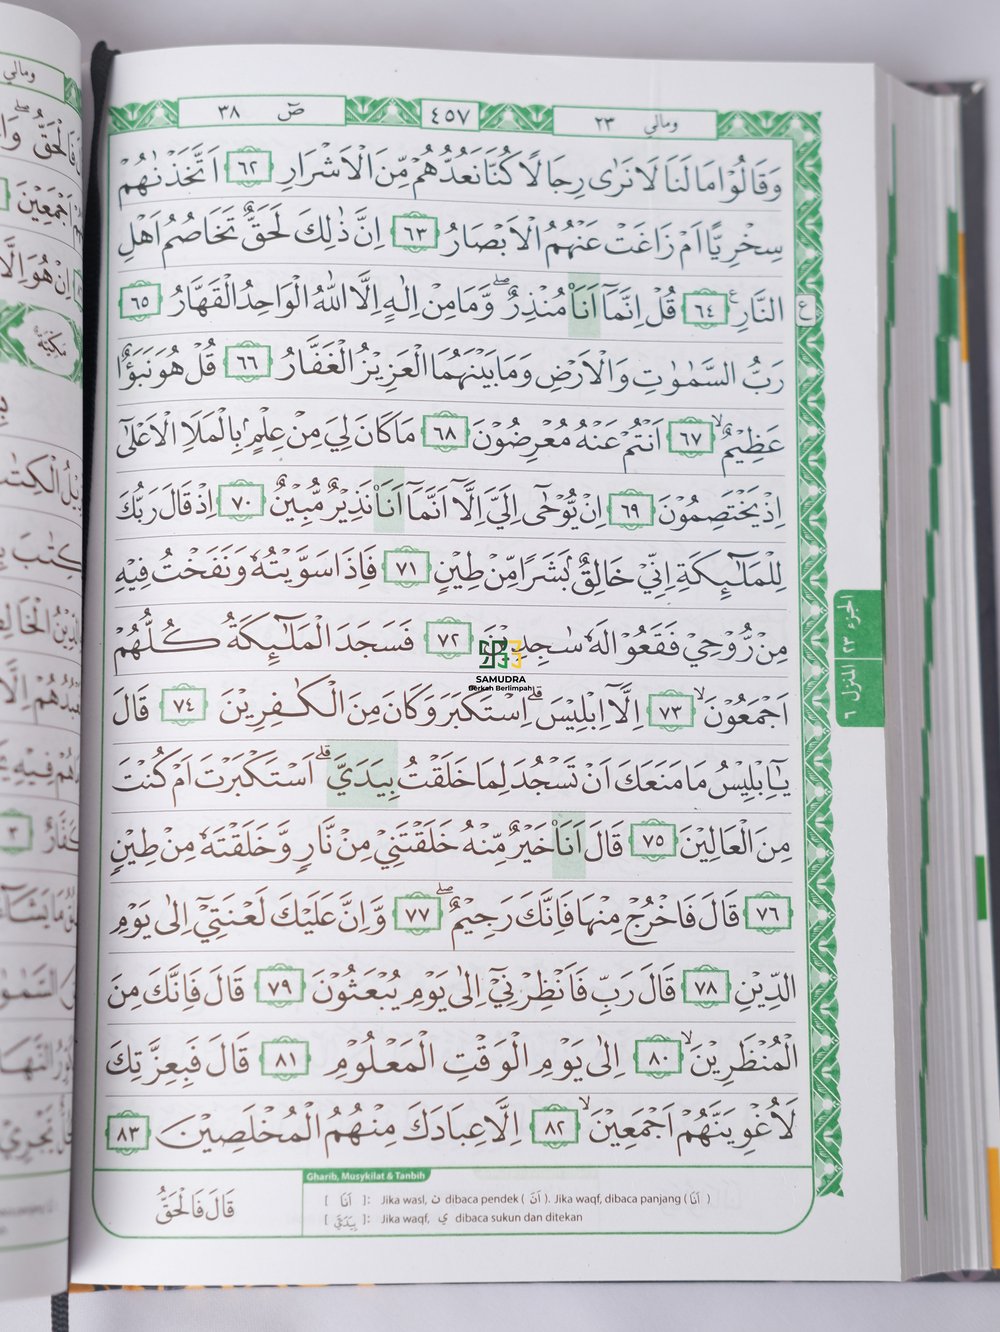 ومالي ٢٣
٤٥٧
صٓ ٣٨
وَقَالُوْا مَا لَنَا لَا نَرٰى رِجَالًا كُنَّا نَعُدُّهُمْ مِّنَ الْاَشْرَارِ ٦٢ اَتَّخَذْنٰهُمْ
سِخْرِيًّا اَمْ زَاغَتْ عَنْهُمُ الْاَبْصَارُ ٦٣ اِنَّ ذٰلِكَ لَحَقٌّ تَخَاصُمُ اَهْلِ
النَّارِ ࣖ ٦٤ قُلْ اِنَّمَآ اَنَا۠ مُنْذِرٌ ۖ وَّمَا مِنْ اِلٰهٍ اِلَّا اللّٰهُ الْوَاحِدُ الْقَهَّارُ ٦٥
رَبُّ السَّمٰوٰتِ وَالْاَرْضِ وَمَا بَيْنَهُمَا الْعَزِيْزُ الْغَفَّارُ ٦٦ قُلْ هُوَ نَبَؤٌا
عَظِيْمٌۙ ٦٧ اَنْتُمْ عَنْهُ مُعْرِضُوْنَ ٦٨ مَا كَانَ لِيَ مِنْ عِلْمٍۢ بِالْمَلَاِ الْاَعْلٰٓى
اِذْ يَخْتَصِمُوْنَ ٦٩ اِنْ يُّوْحٰٓى اِلَيَّ اِلَّآ اَنَّمَآ اَنَا۠ نَذِيْرٌ مُّبِيْنٌ ٧٠ اِذْ قَالَ رَبُّكَ
لِلْمَلٰۤىِٕكَةِ اِنِّيْ خَالِقٌۢ بَشَرًا مِّنْ طِيْنٍ ٧١ فَاِذَا سَوَّيْتُهٗ وَنَفَخْتُ فِيْهِ
مِنْ رُّوْحِيْ فَقَعُوْا لَهٗ سٰجِدِيْنَ ٧٢ فَسَجَدَ الْمَلٰۤىِٕكَةُ كُلُّهُمْ
اَجْمَعُوْنَۙ ٧٣ اِلَّآ اِبْلِيْسَۗ اِسْتَكْبَرَ وَكَانَ مِنَ الْكٰفِرِيْنَ ٧٤ قَالَ
يٰٓاِبْلِيْسُ مَا مَنَعَكَ اَنْ تَسْجُدَ لِمَا خَلَقْتُ بِيَدَيَّۗ اَسْتَكْبَرْتَ اَمْ كُنْتَ
مِنَ الْعَالِيْنَ ٧٥ قَالَ اَنَا۠ خَيْرٌ مِّنْهُ خَلَقْتَنِيْ مِنْ نَّارٍ وَّخَلَقْتَهٗ مِنْ طِيْنٍ
٧٦ قَالَ فَاخْرُجْ مِنْهَا فَاِنَّكَ رَجِيْمٌۖ ٧٧ وَّاِنَّ عَلَيْكَ لَعْنَتِيْٓ اِلٰى يَوْمِ
الدِّيْنِ ٧٨ قَالَ رَبِّ فَاَنْظِرْنِيْٓ اِلٰى يَوْمِ يُبْعَثُوْنَ ٧٩ قَالَ فَاِنَّكَ مِنَ
الْمُنْظَرِيْنَۙ ٨٠ اِلٰى يَوْمِ الْوَقْتِ الْمَعْلُوْمِ ٨١ قَالَ فَبِعِزَّتِكَ
لَاُغْوِيَنَّهُمْ اَجْمَعِيْنَۙ ٨٢ اِلَّا عِبَادَكَ مِنْهُمُ الْمُخْلَصِيْنَ ٨٣
ع
الجزء ٢٣
المنزل ٦
SAMUDRA
Berkah Berlimpah
Gharib, Musykilat & Tanbih
[ اَنَا۠ ]: Jika wasl, ن dibaca pendek ( اَنَ ). Jika waqf, dibaca panjang ( اَنَا )
[ بِيَدَيَّ ]: Jika waqf, ي dibaca sukun dan ditekan
قَالَ فَالْحَقُّ